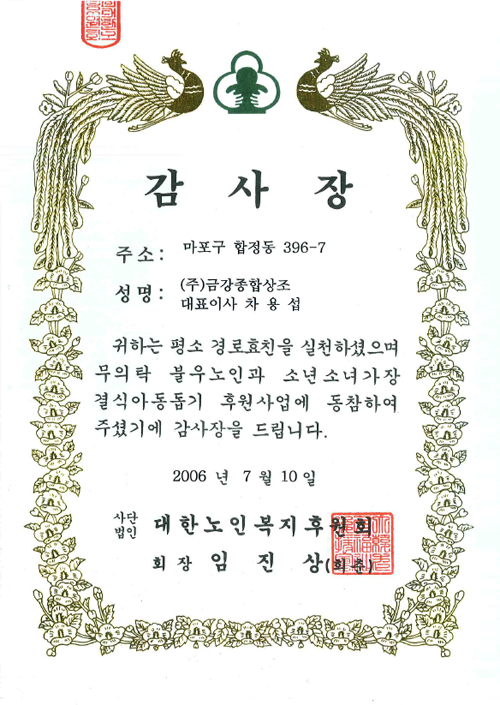 감 사 장
주소: 마포구 합정동 396-7
성명: (주)금강종합상조
대표이사 차 용 섭
귀하는 평소 경로효친을 실천하셨으며
무의탁 불우노인과 소년소녀가장
결식아동돕기 후원사업에 동참하여
주셨기에 감사장을 드립니다.
2006 년 7 월 10 일
사단법인 대한노인복지후원회
회장 임 진 상(희준)